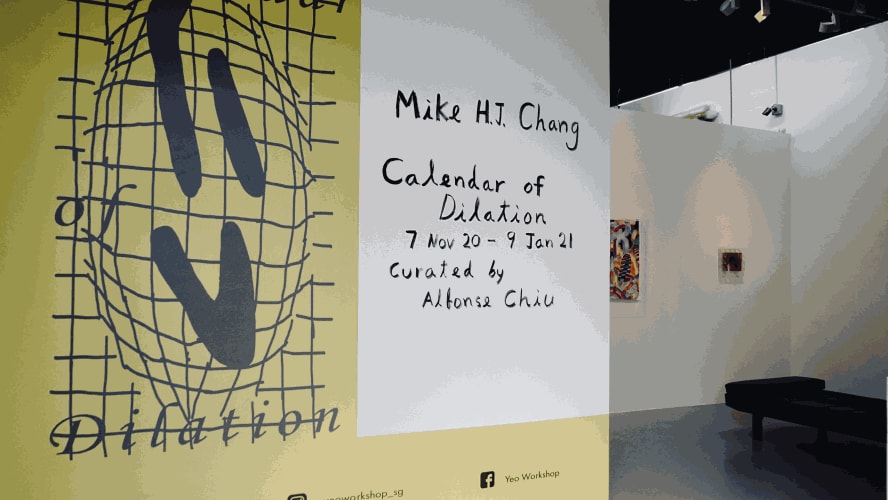 of
Dilation
Mike H.J. Chang
Calendar of
Dilation
7 Nov 20 - 9 Jan 21
Curated by
Alfonse Chiu
Yeo Workshop